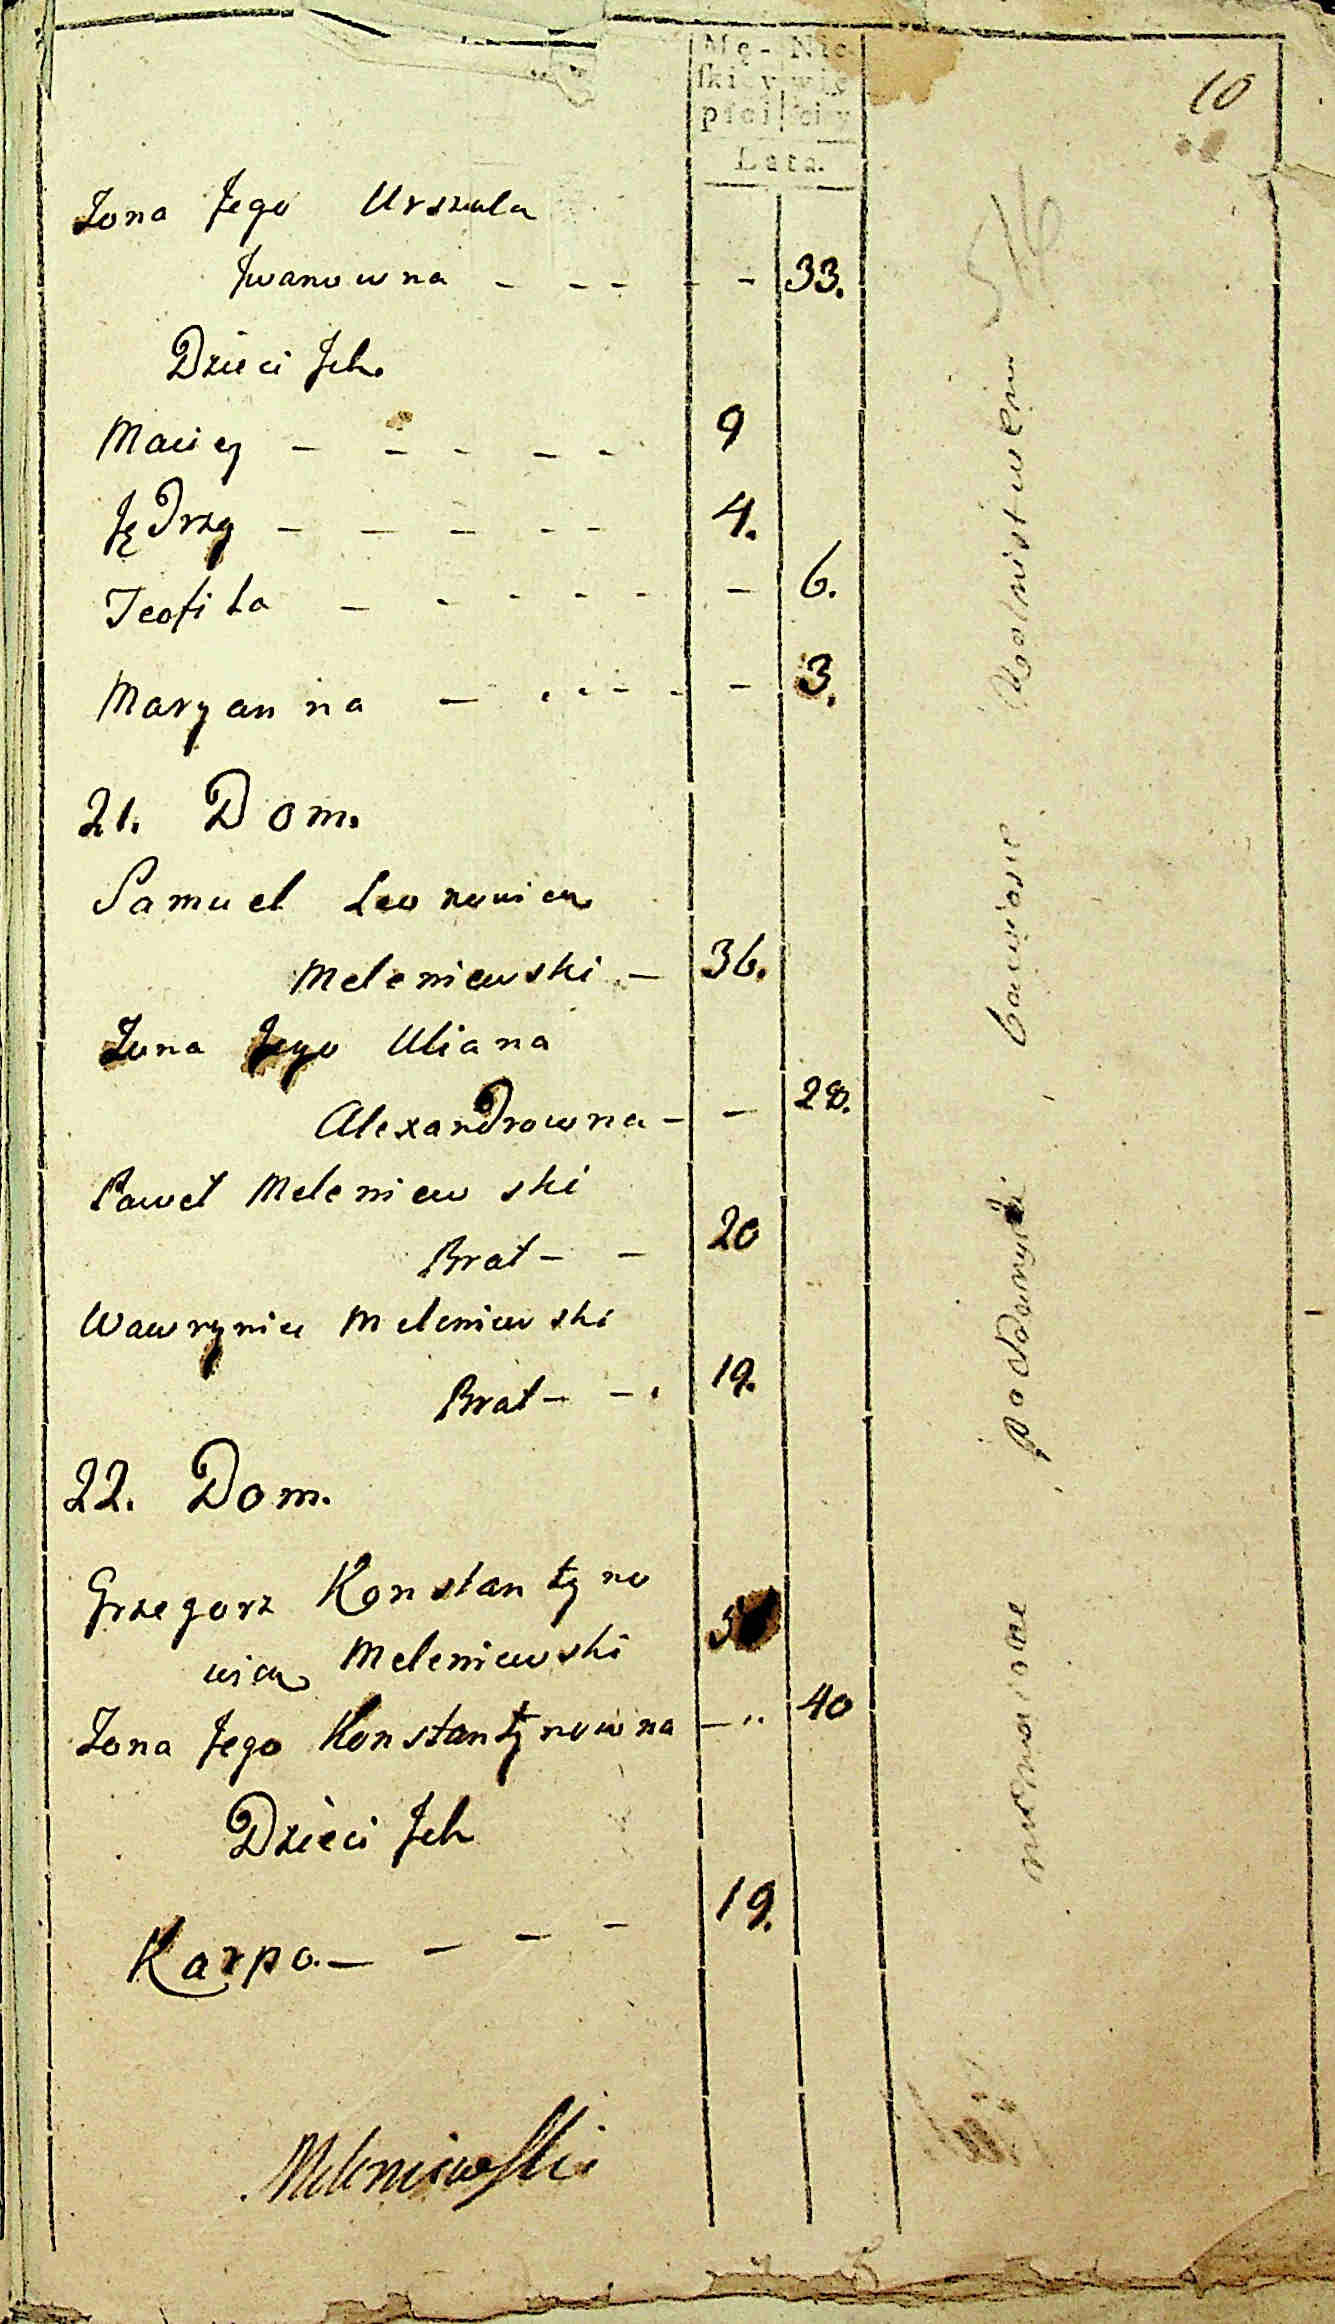 Mę- Nie
skiey wie
płci ściey
Lata.
10
Żona Jego Urszula
Jwanowna - - - - - 33.
Dzieci Jch.
Maciey - - - - - 9
Jędrzy - - - - - 4.
Teofila - - - - - - 6.
Maryanna - - - - - - 3.
21. Dom.
Samuel Leonowicz
Meleniewski - 36.
Żona Jego Uliana
Alexandrowna - - 28.
Paweł Meleniewski
Brat - - 20
Wawryniec Meleniewski
Brat - - 19.
22. Dom.
Grzegorz Konstantyno
wicz Meleniewski
Żona Jego Konstantynowna - 40
Dzieci Jch
Karpo - - - - 19.
Meleniewski
bawiąsie